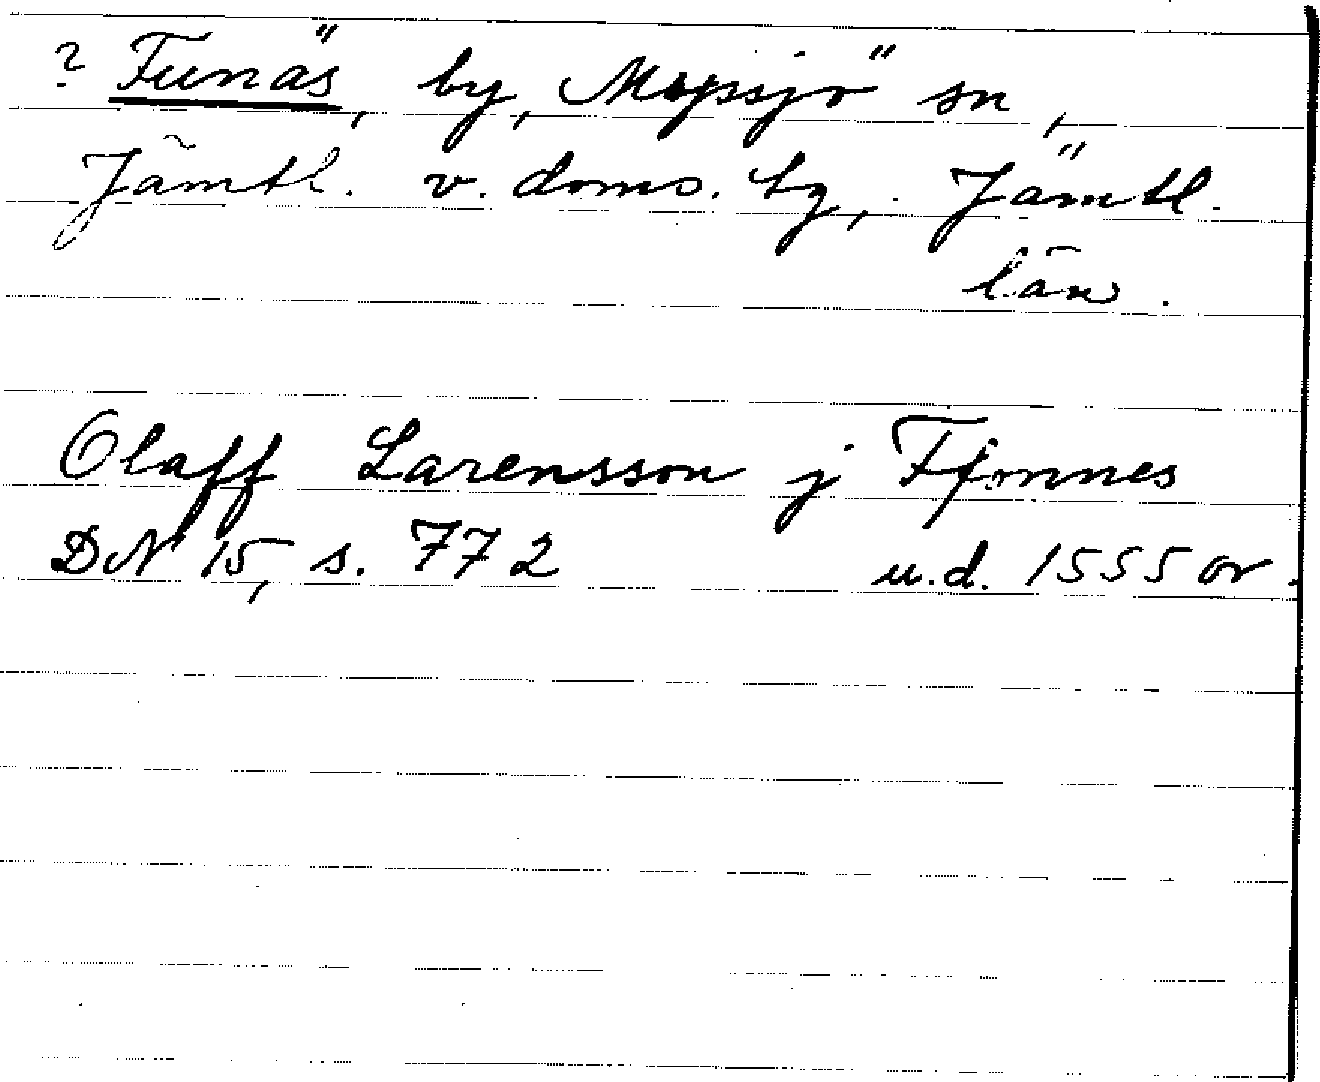 ? Funäs, by, Mspsjö sn,
Jämtl. v. doms. tg, Jämtl.
län.
Olaff Larensson j Ffonnes
DN 15, s. 772 u.d. 1555 or.